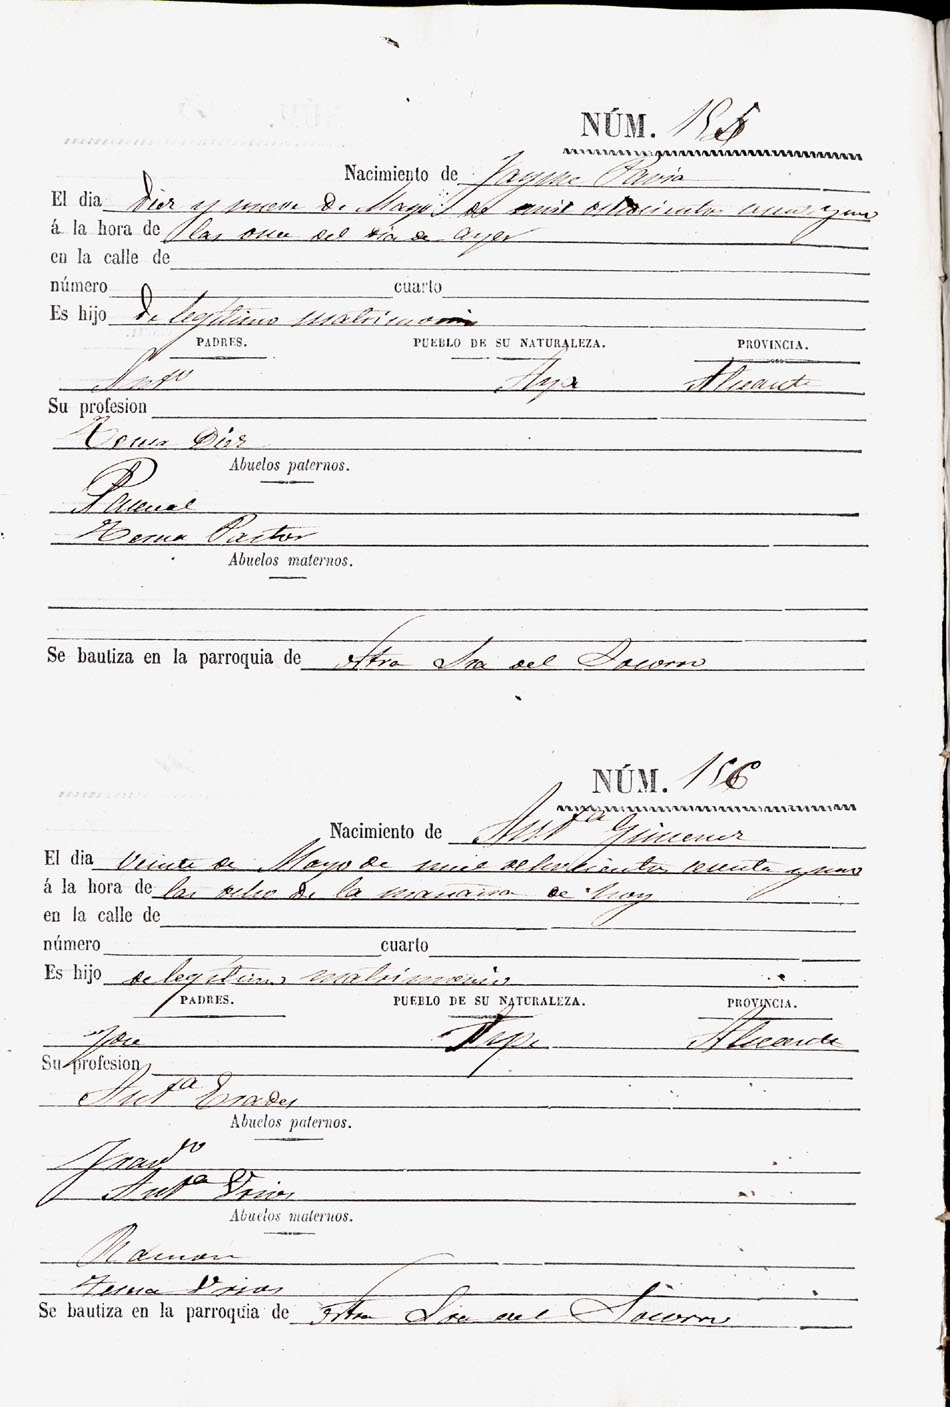 NÚM. 155
Nacimiento de Jayme Pavia
El dia Diez y nueve de Mayo de mil ochocientos sesenta y uno
á la hora de las once del dia de ayer
en la calle de
número cuarto
Es hijo de legítimo matrimonio
PADRES. PUEBLO DE SU NATURALEZA. PROVINCIA.
Antº Aspe Alicante
Su profesion
Teresa Diez
Abuelos paternos.
Pascual
Teresa Pastor
Abuelos maternos.
Se bautiza en la parroquia de Ntra Sra del Socorro
NÚM. 156
Nacimiento de Antª Gimenez
El dia veinte de Mayo de mil ochocientos sesenta y uno
á la hora de las ocho de la mañana de hoy
en la calle de
número cuarto
Es hijo de legítimo matrimonio
PADRES. PUEBLO DE SU NATURALEZA. PROVINCIA.
Jose Aspe Alicante
Su profesion
Antª Erades
Abuelos paternos.
Francº
Antª Urios
Abuelos maternos.
Ramon
Teresa Urios
Se bautiza en la parroquia de Ntra Sra del Socorro